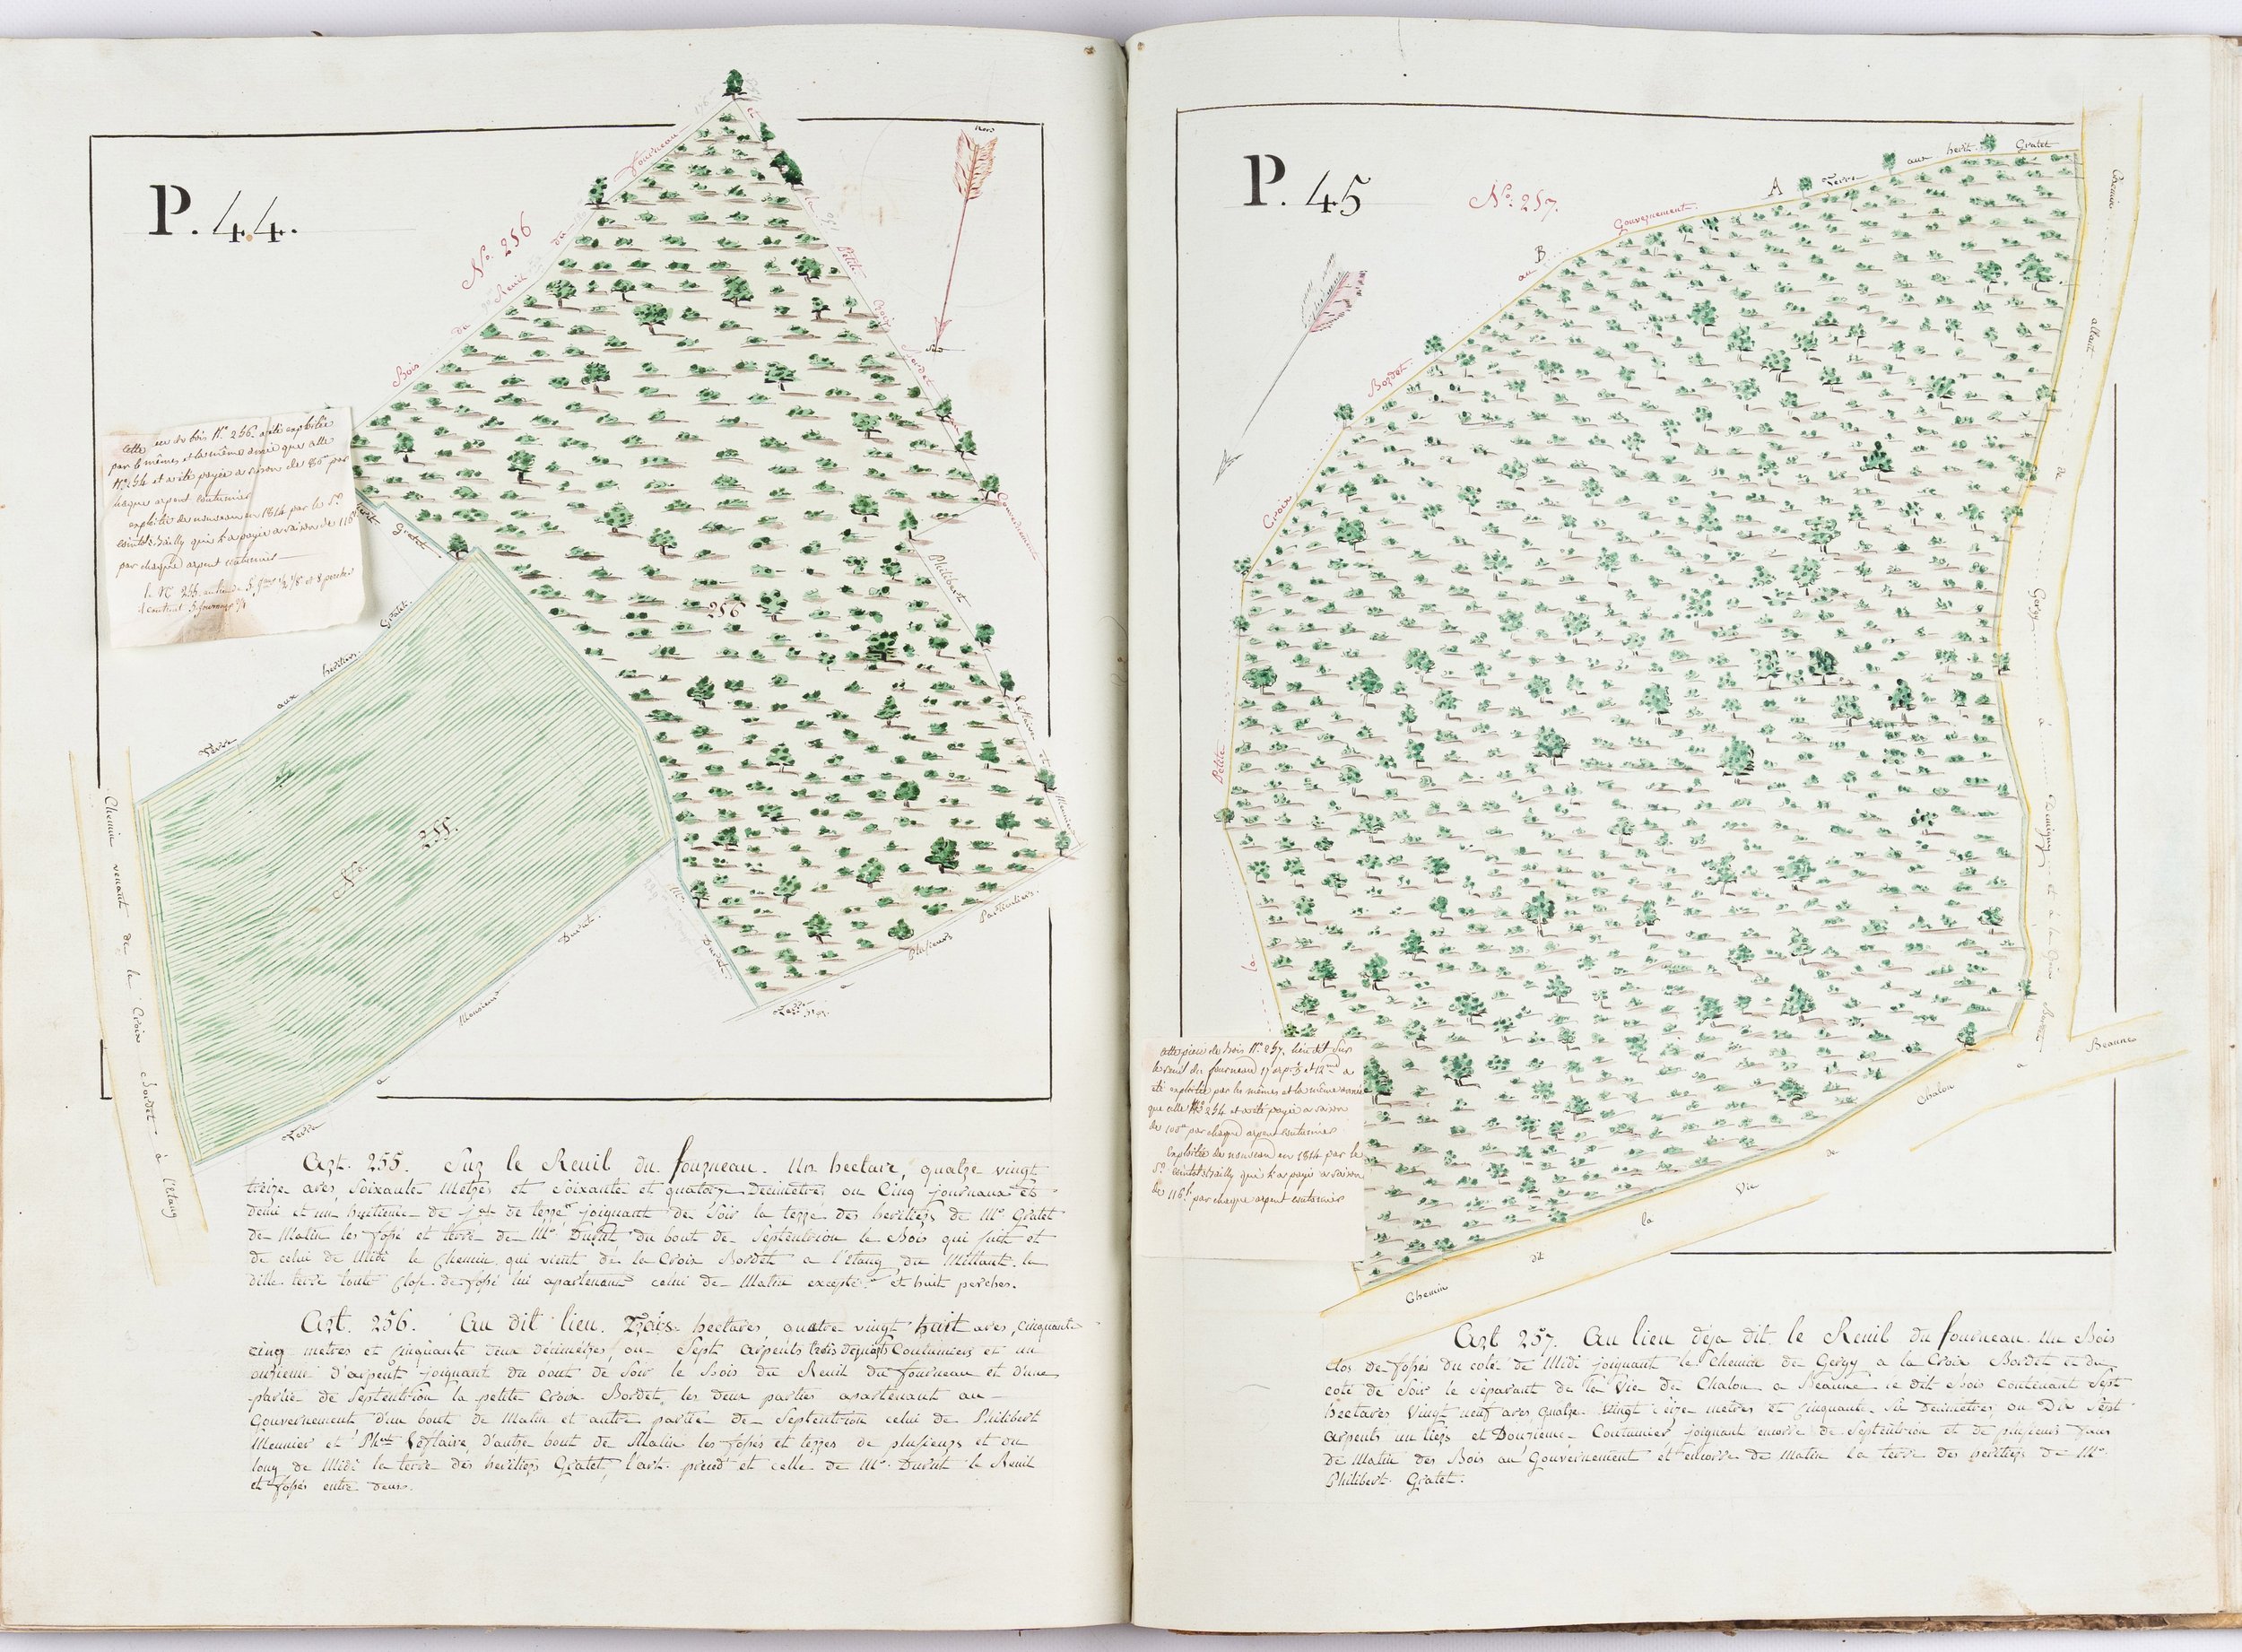 P. 44.
No. 256
Bois du Reuil du fourneau
Nord
Sud
la Petite Croix Bordet
Gouvernement
Philibert
Meunier
256
Cette de bois No. 256. a été exploitée
par le mêmes et la même année que celle
No. 254 et a été payée a raison de par
chaque arpent coutumier
exploitée de nouveau en 1814 par les Srs
qui l'a payée a raison de 116
par chaque arpent coutumier
Gratet
Terre aux heritiers Gratet.
No. 255.
Chemin venant de la Croix Bordet à l'Etang
Terre a Monsieur Durut.
Mr. Durut.
Terre a Plusieurs Particuliers.
Art. 255. Sur le Reuil du fourneau. Un hectare, quatre vingt
treize ares, Soixante Metres et Soixante et quatorze Decimetres ou Cinq journaux et
demi et un huitieme de jal de terre joignant de Soir la terre des heritiers de Mr. Gratet
de Matin les fossé et terre de Mr. Durut du bout de Septentrion le Bois qui suit et
de celui de Midi le Chemin qui vient de la Croix Bordet a l'etang du Millant. la
ditte terre toute close de fossé lui apartenant celui de Matin excepté. et huit perches.
Art. 256. Au dit lieu. Trois hectares, quatre vingt huit ares, cinquante
cinq metres et cinquante deux décimetres, ou Sept arpents Coutumiers et un
onzieme d'arpent joignant du bout de Soir le Bois du Reuil du fourneau et d'une
partie de Septentrion la petite Croix Bordet, les deux parties apartenant au
Gouvernement d'un bout de Matin et autre partie de Septentrion celui de Philibert
Meunier et d'autre bout de Matin les fossés et terres de plusieurs et au
long de Midi la terre des heritiers Gratet, l'art. precedt et celle de Mr. Durut le Reuil
et fossés entre deux.
P. 45
No. 257.
la Petite Croix Bordet
au B Gouvernement.
A Terre aux herit. Gratet
Chemin allant de Gergy à Demigny et à la Croix Bordet
Beaune
Chemin dit la Vie de Chalon a
Cette piece de bois No. 257. lieu dit Sur
le reuil du fourneau 17 arp. et 12me a
été exploitée par les mêmes et la même année
que celle No. 254 et a été payée a raison
de par chaque arpent coutumier
exploitée de nouveau en 1814 par le
Sr. qui l'a payé a raison
de 116f par chaque arpent coutumier
Art 257. Au lieu déja dit le Reuil du fourneau. Un Bois
clos de fossés du coté de Midi joignant le Chemin de Gergy a la Croix Bordet et du
coté de Soir le separant de la Vie de Chalon a Beaune le dit Bois contenant Sept
hectares Vingt neuf ares, quatre Vingt seize metres et cinquante Six Decimetres, ou Dix Sept
arpents un tiers et Douzieme Coutumier joignant encorre de Septentrion et de plusieurs fans
de Matin des Bois au Gouvernement et encorre de Matin la terre des heritiers de Mr.
Philibert Gratet.